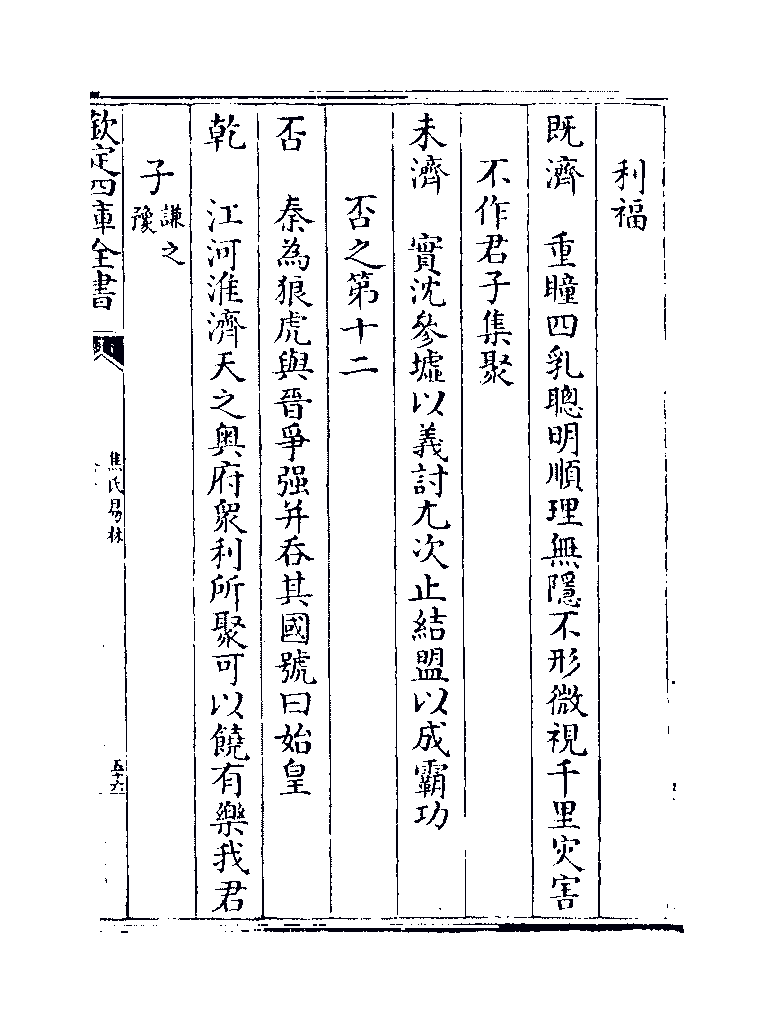 利福
既濟　重瞳四乳聰明順理無隱不形微視千里灾害
不作君子集聚
未濟　實沈參墟以義討尤次止結盟以成霸功
否之第十二
否　秦為狼虎與晉爭强并吞其國號曰始皇
乾　江河淮濟天之奥府衆利所聚可以饒有樂我君
子謙之豫
欽定四庫全書
焦氏易林
五十六